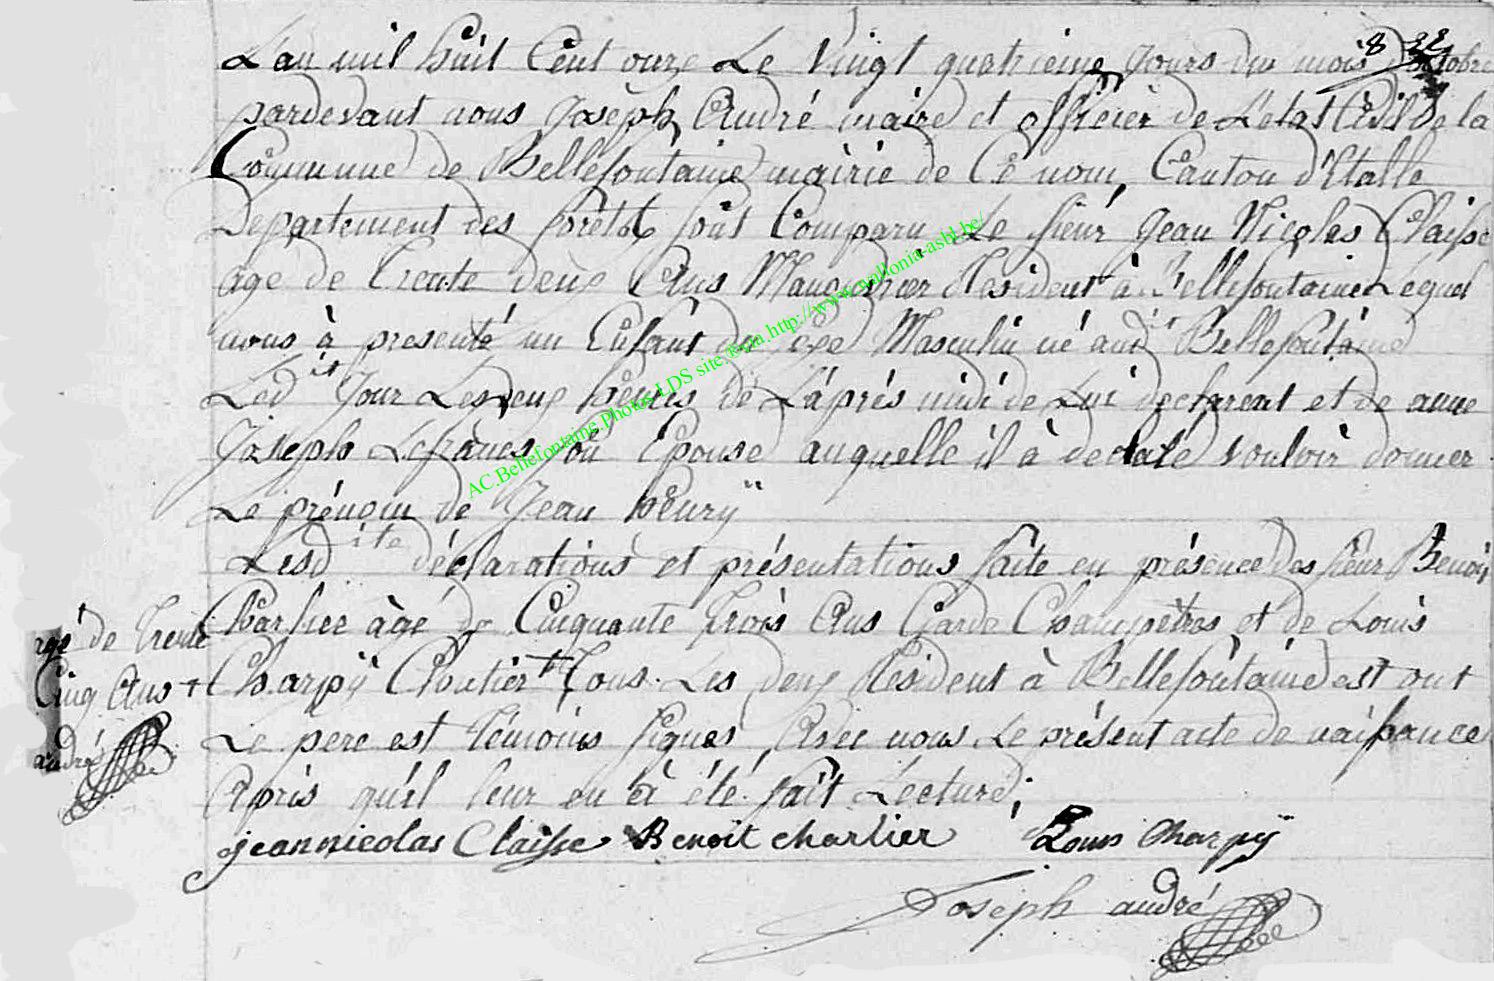 L'an mil huit Cent onze Le Vingt quatrieme Jours du mois 8 octobre
pardevant nous Joseph André maire et officier de L'etat Civil de la
Commune de Bellefontaine mairie de Ce nom, Canton d'Etalle
Departement des forêts sont Comparu Le sieur Jean Nicolas Claisse
age de trente deux Ans Resident à Bellefontaine Lequel
nous à presenté un Enfant du sexe Masculin né audit Bellefontaine
Ledit Jour Les deux heures de L'après midi de Lui declarent et de anne
Joseph son Epouse auquelle il à declaré vouloir donner
Le prénom de Jean henrÿ
Lesdite déclarations et présentations faite en présence des sieur Benoit
Charlier àgé de Cinquante trois Ans Garde Champètres et de Louis
Charpÿ Cloutier + Tous Les deux Résident à Bellefontaine est ont
Le pere est témoins signés Avec nous Le présent acte de naissance
Après qu'il leur en à été fait Lecture;
agé de trente
Cinq Ans +
andré
jean nicolas Claisse Benoit charlier Louis Charpÿ
Joseph andré
AC.Bellefontaine.Photos LDS site.®ita.http://www.wallonia-asbl.be/